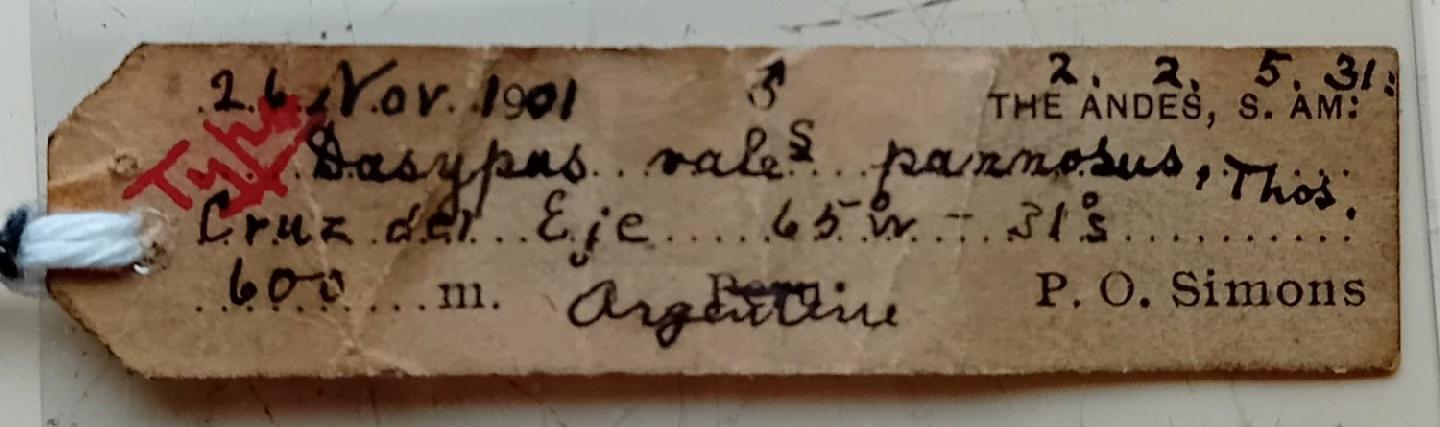 26 Nov. 1901 ♂ 2. 2. 5. 31.
THE ANDES, S. AM:
Type
Dasypus pannosus, Thos.
Cruz del Eje 65°W - 31°S
600 m. Argentine P. O. Simons